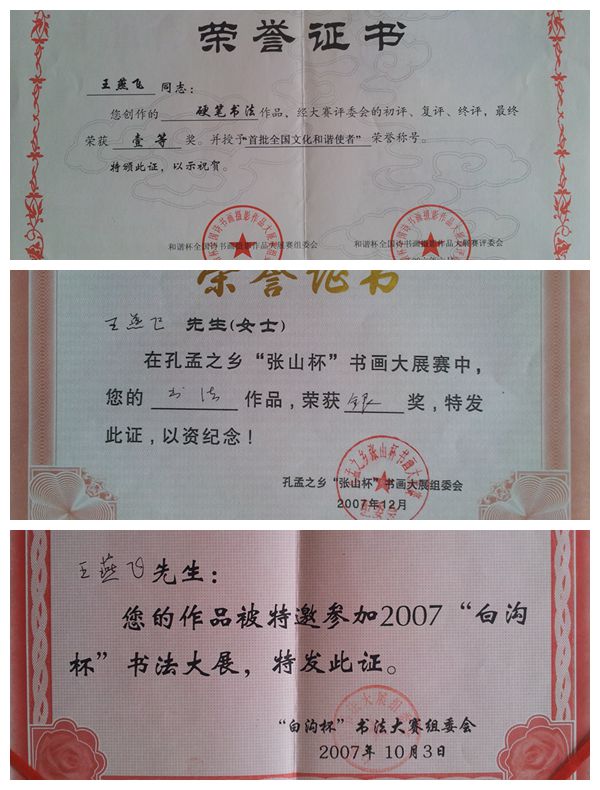 荣誉证书
王燕飞 同志：
您创作的 硬笔书法 作品、经大赛评委会的初评、复评、终评，最终
荣获 壹等 奖。并授予"首批全国文化和谐使者" 荣誉称号。
特颁此证，以示祝贺。
和谐杯全国诗书画摄影作品大展赛组委会
和谐杯全国诗书画摄影作品大展赛评委会
荣誉证书
王燕飞 先生(女士)
在孔孟之乡“张山杯”书画大展赛中，
您的 书法 作品，荣获 银 奖，特发
此证，以资纪念！
孔孟之乡“张山杯”书画大展组委会
2007年12月
王燕飞先生：
您的作品被特邀参加2007“白沟
杯”书法大展，特发此证。
“白沟杯”书法大赛组委会
2007年 10月3日